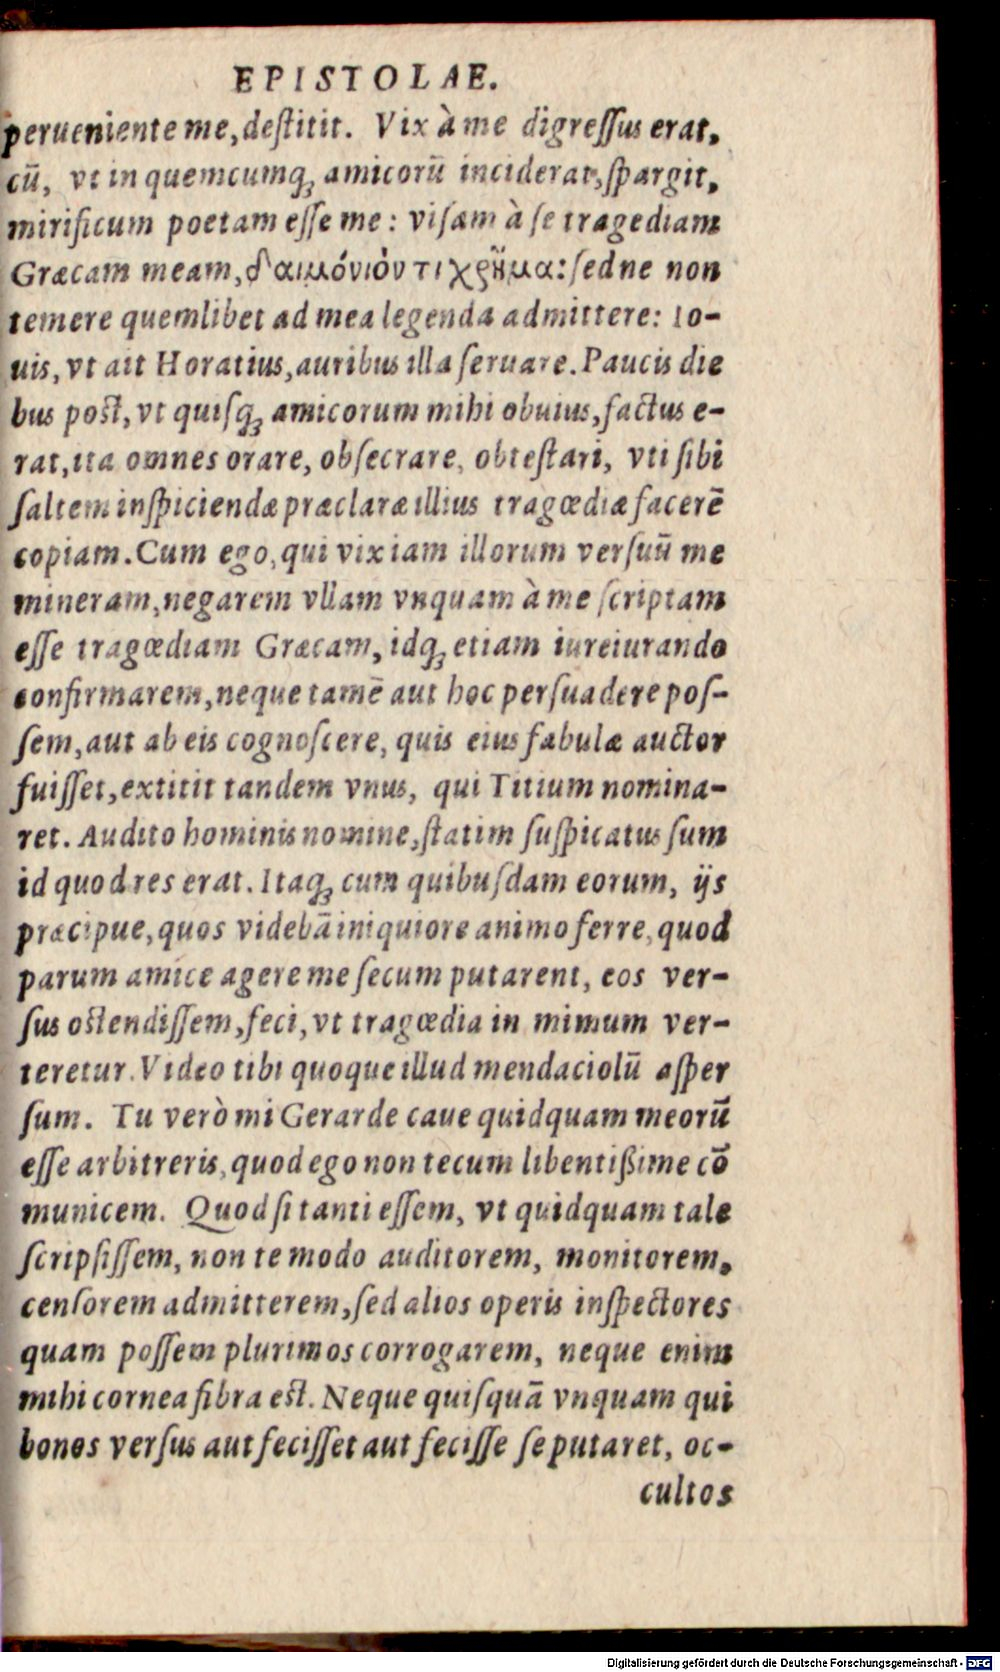 EPISTOLAE.
perueniente me, destitit. Vix à me digressus erat,
cū, vt in quemcumq; amicorū inciderat, spargit,
mirificum poetam esse me: visam à se tragediam
Græcam meam, δαιμόνιόν τι χρῆμα: sed ne non
temere quemlibet ad mea legenda admittere: Io-
uis, vt ait Horatius, auribus illa seruare. Paucis die
bus post, vt quisq; amicorum mihi obuius, factus e-
rat, ita omnes orare, obsecrare, obtestari, vti sibi
saltem inspiciendæ præclaræ illius tragœdiæ facerē
copiam. Cum ego, qui vix iam illorum versuū me
mineram, negarem vllam vnquam à me scriptam
esse tragœdiam Græcam, idq; etiam iureiurando
confirmarem, neque tamē aut hoc persuadere pos-
sem, aut ab eis cognoscere, quis eius fabulæ auctor
fuisset, extitit tandem vnus, qui Titium nomina-
ret. Audito hominis nomine, statim suspicatus sum
id quod res erat. Itaq; cum quibusdam eorum, ijs
præcipue, quos videbā iniquiore animo ferre, quod
parum amice agere me secum putarent, eos ver-
sus ostendissem, feci, vt tragœdia in mimum ver-
teretur. Video tibi quoque illud mendaciolū asper
sum. Tu verò mi Gerarde caue quidquam meorū
esse arbitreris, quod ego non tecum libentißime cō
municem. Quod si tanti essem, vt quidquam tale
scripsissem, non te modo auditorem, monitorem,
censorem admitterem, sed alios operis inspectores
quam possem plurimos corrogarem, neque enim
mihi cornea fibra est. Neque quisquā vnquam qui
bonos versus aut fecisset aut fecisse se putaret, oc-
cultos
Digitalisierung gefördert durch die Deutsche Forschungsgemeinschaft - DFG